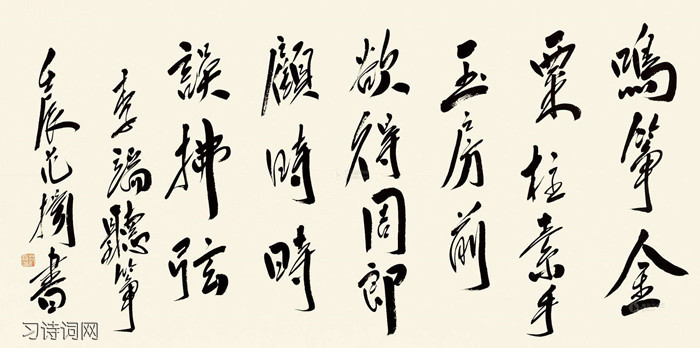 鳴箏金
粟柱素手
玉房前
欲得周郎
顧時時
誤拂弦
李端聽箏
壬辰范書
习诗词网